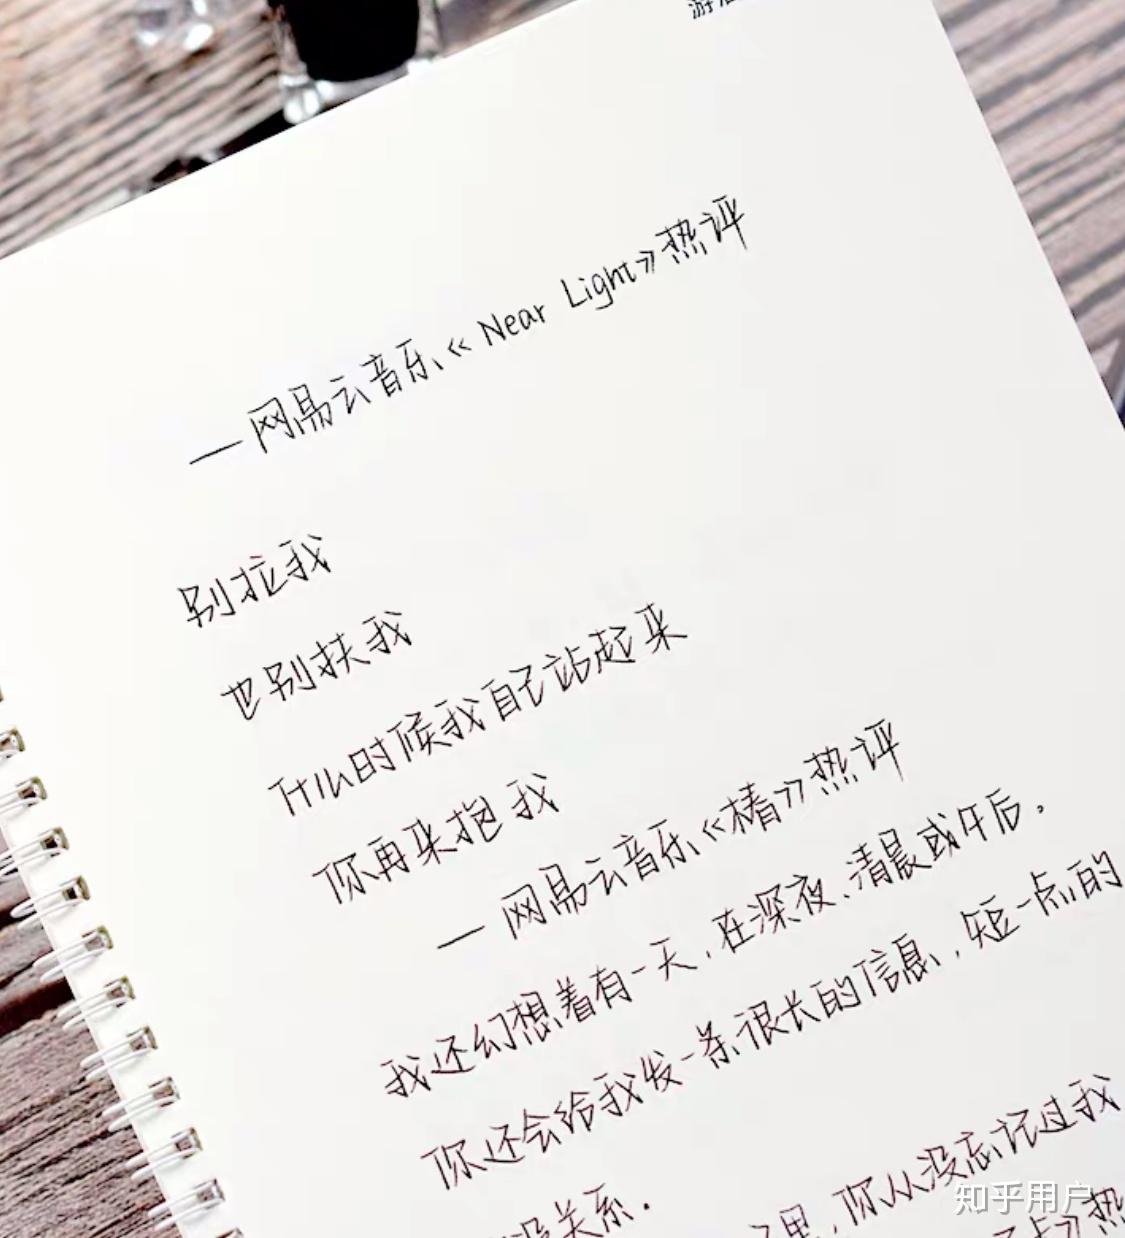 游
—网易云音乐《Near Light》热评
别拉我
也别扶我
什么时候我自己站起来
你再来抱我
—网易云音乐《椿》热评
我还幻想着有一天,在深夜、清晨或午后,
你还会给我发一条很长的信息,短一点的
没关系.
里,你从没忘记过我
热
知乎用户